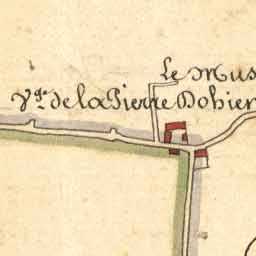 Le Mus
V.ge de la Pierre Dohier